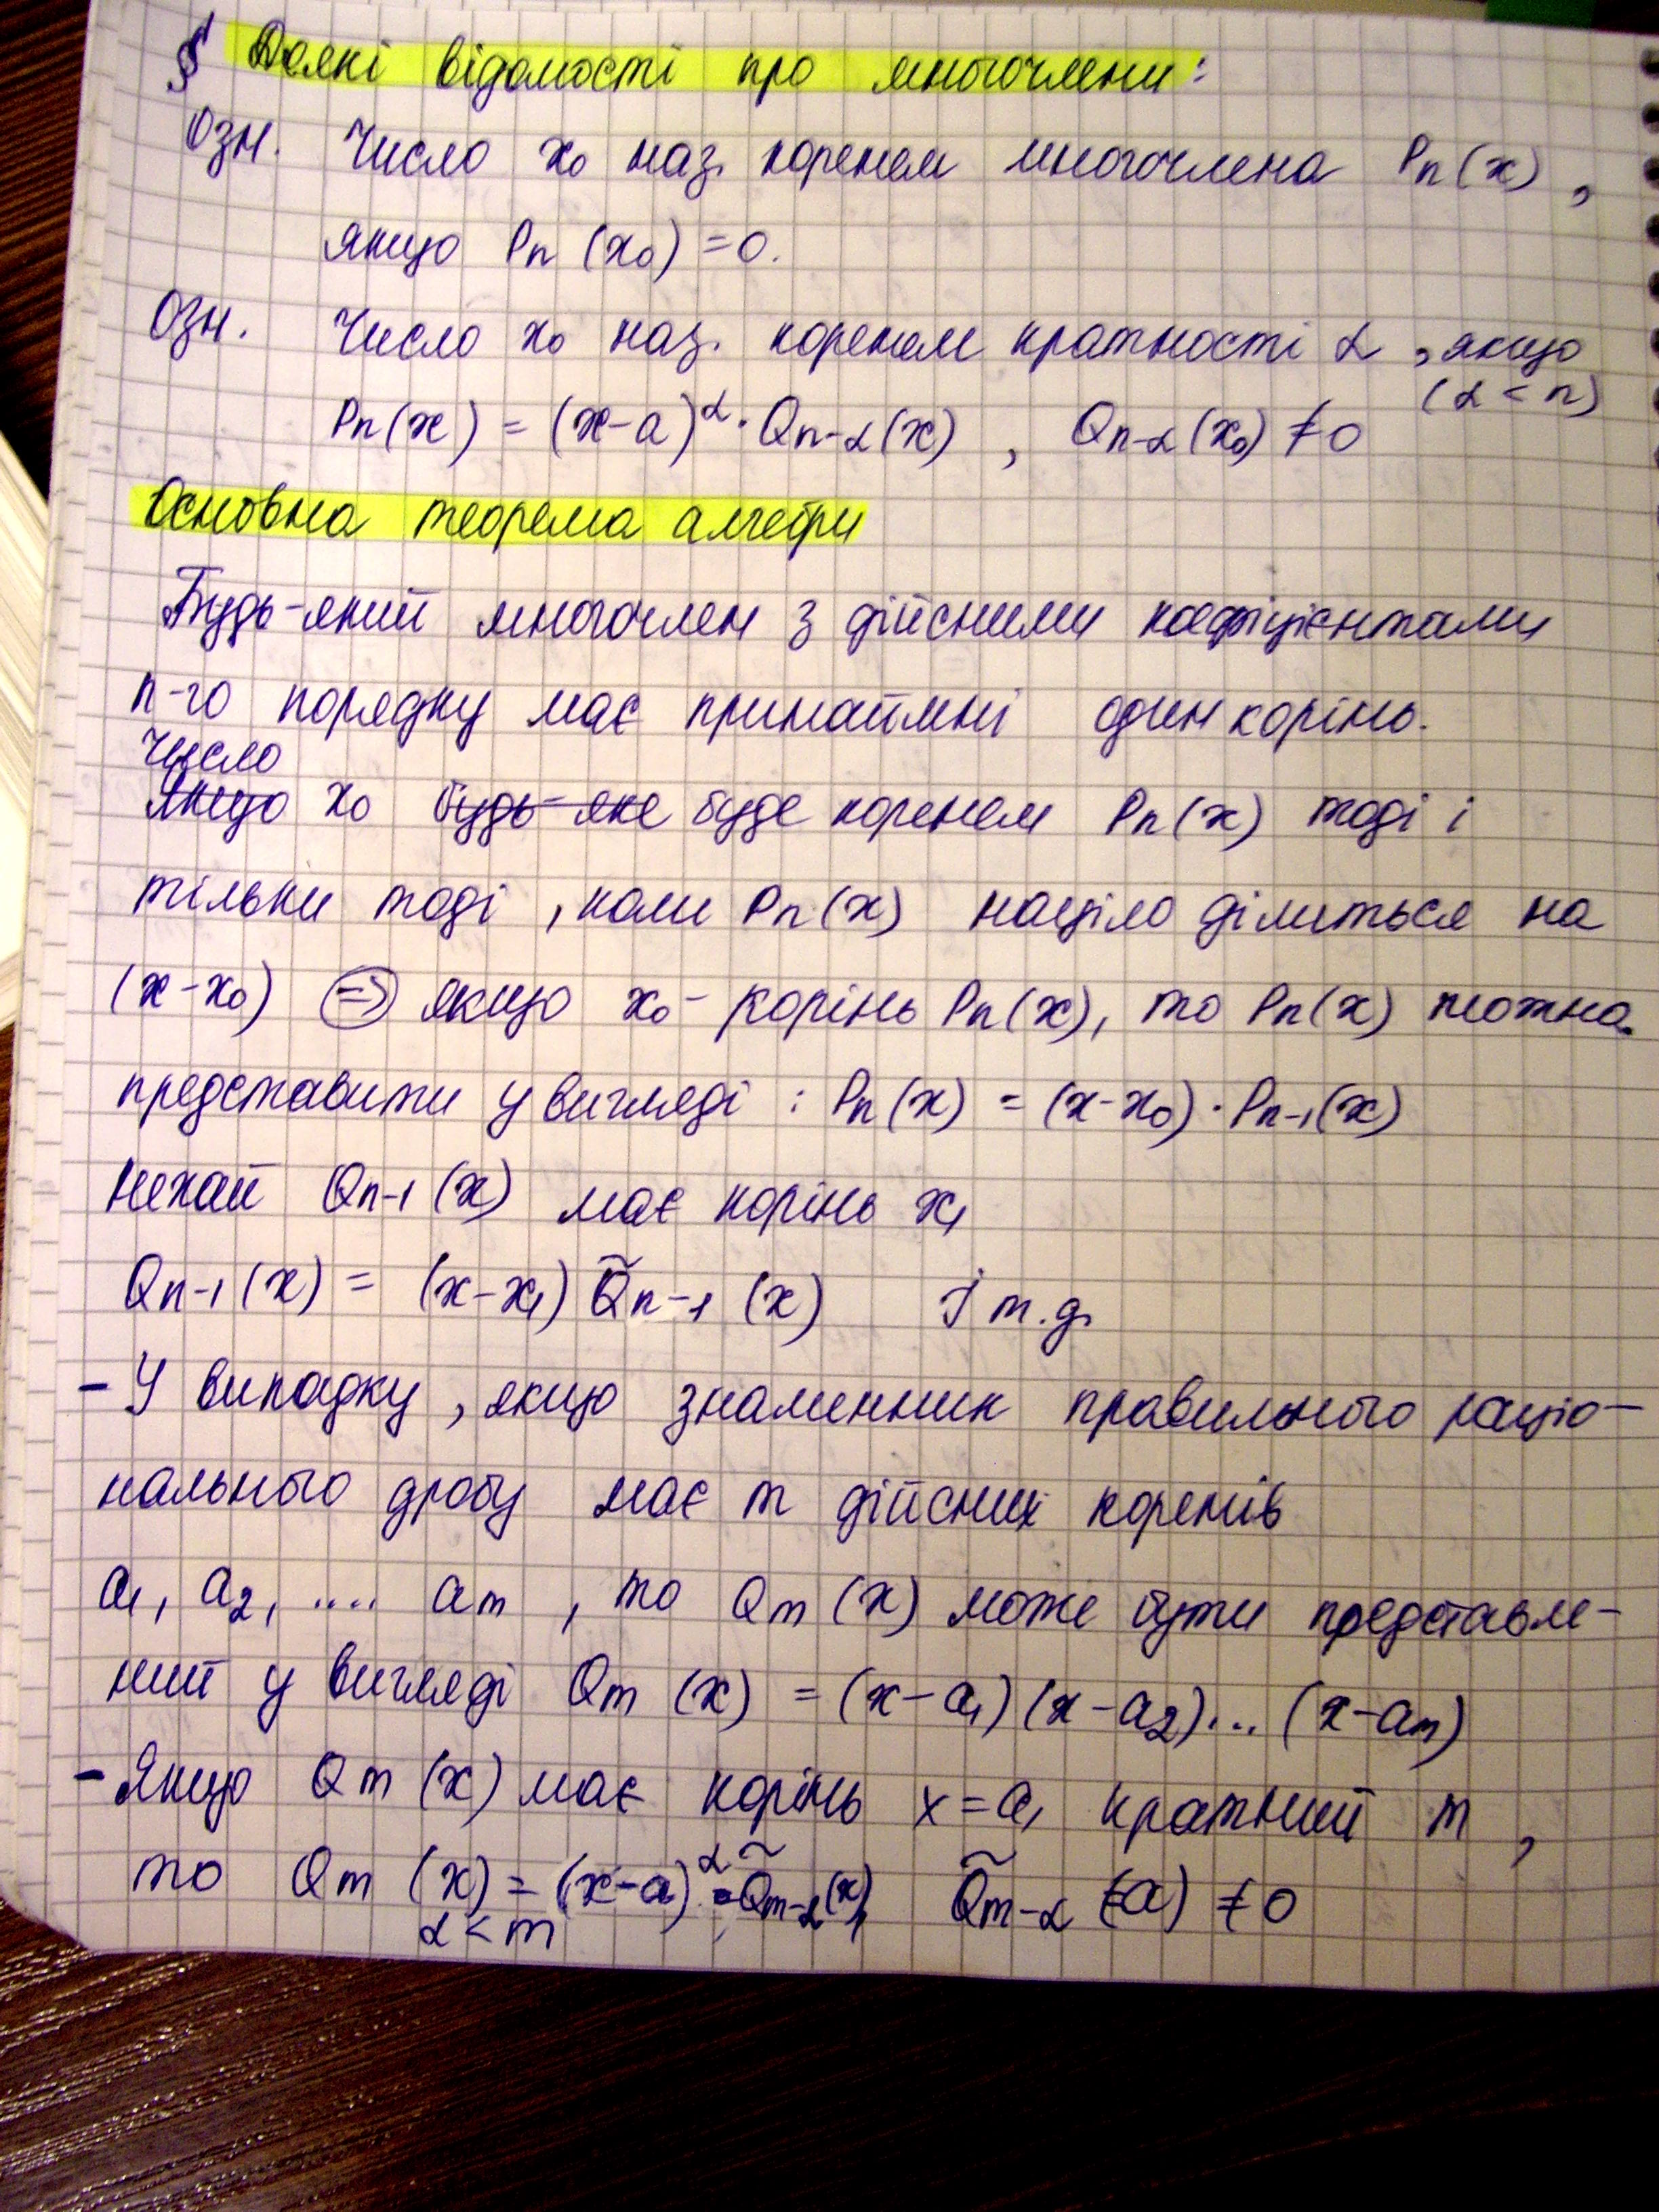 § Деякі відомості про многочлени:
Озн. Число x₀ наз. коренем многочлена Pn(x),
якщо Pn(x₀)=0.
Озн. Число x₀ наз. коренем кратності α, якщо
(α<n)
Pn(x) = (x-a)^α · Qn-α(x), Qn-α(x₀) ≠ 0
Основна теорема алгебри
Будь-який многочлен з дійсними коефіцієнтами
n-го порядку має принаймні один корінь.
Число
Якщо x₀ будь-яке буде коренем Pn(x) тоді і
тільки тоді, коли Pn(x) націло ділиться на
(x-x₀) ⇒ якщо x₀ - корінь Pn(x), то Pn(x) можна
представити у вигляді: Pn(x) = (x-x₀)·Pn-1(x)
Нехай Qn-1(x) має корінь x₁
Qn-1(x) = (x-x₁) Q̃n-1(x) І т.д.
- У випадку, якщо знаменник правильного раціо-
нального дробу має m дійсних коренів
a₁, a₂, .... am, то Qm(x) може бути представле-
ний у вигляді Qm(x) = (x-a₁)(x-a₂)...(x-am)
- Якщо Qm(x) має корінь x=a, кратний m,
то Qm(x) = (x-a)^α · Q̃m-α(x), Q̃m-α(a) ≠ 0
α<m